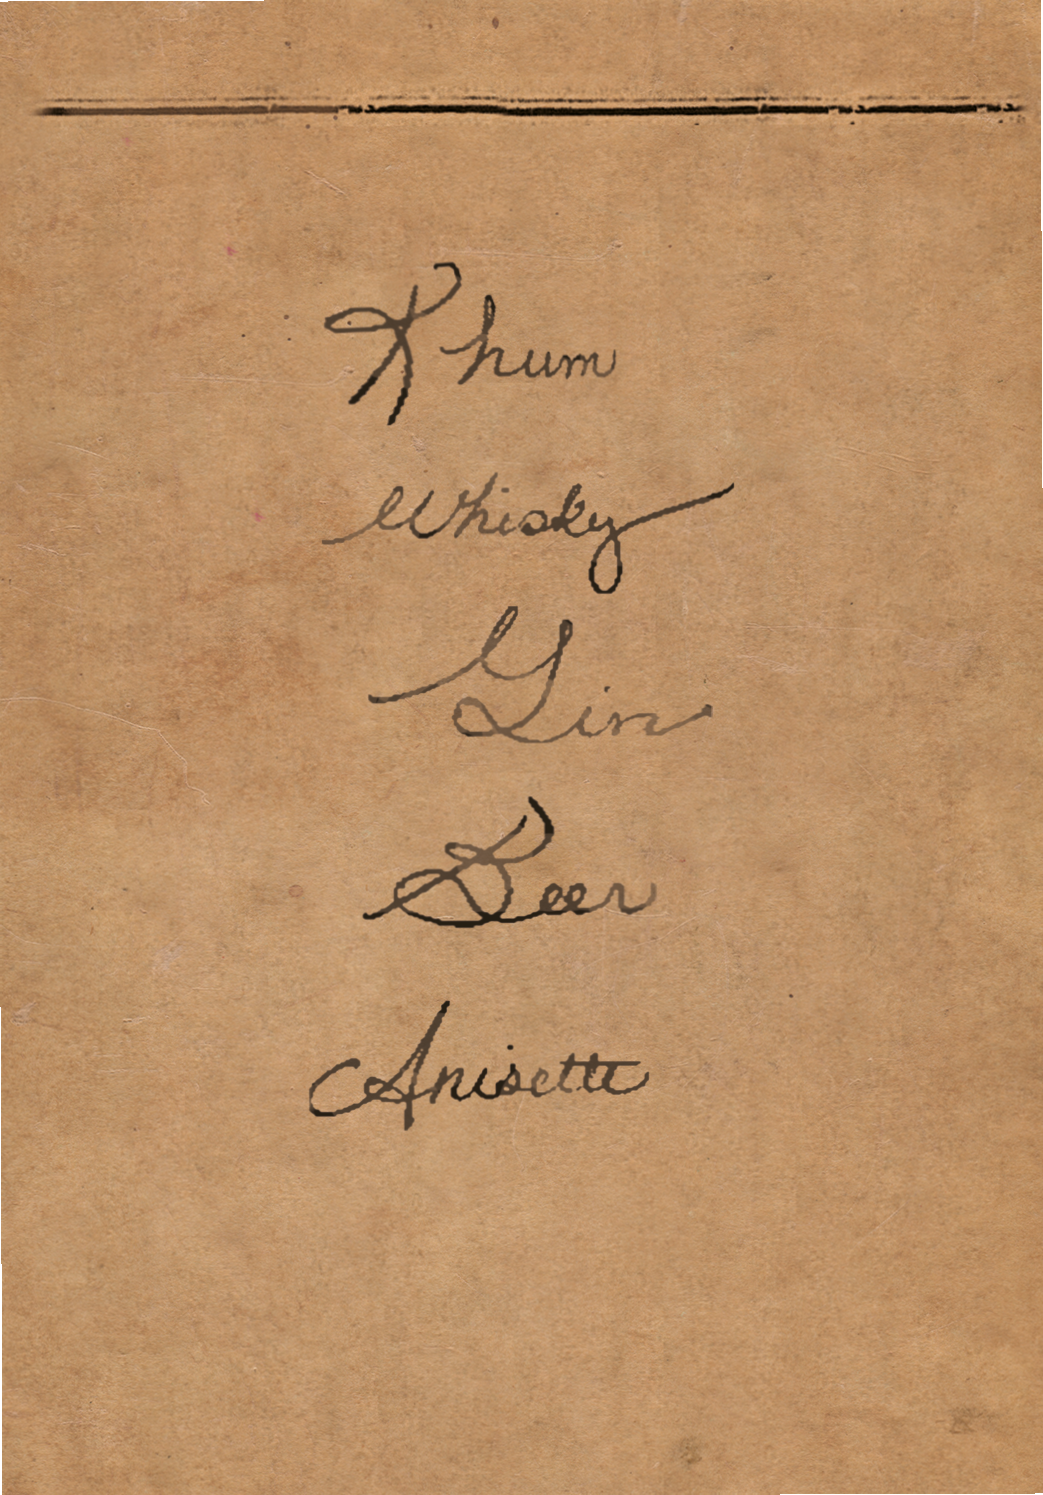 Rhum
Whisky
Gin
Beer
Anisette